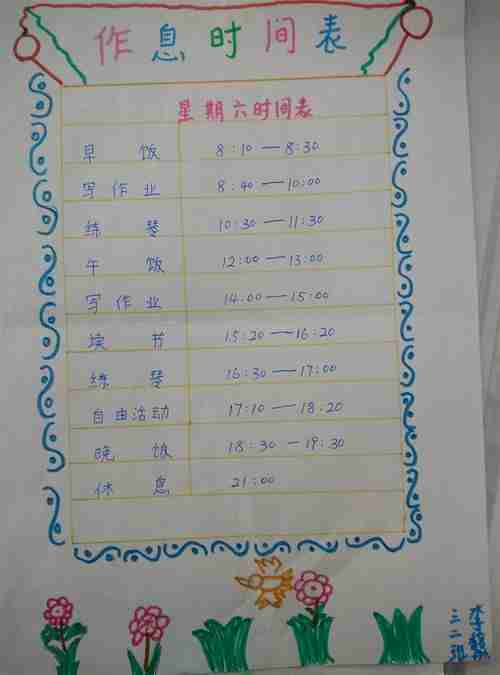 作息时间表
星期六时间表
早饭 8:10—8:30
写作业 8:40—10:00
练琴 10:30—11:30
午饭 12:00—13:00
写作业 14.00—15:00
读书 15:20—16:20
练琴 16:30—17:00
自由活动 17:10—18.20
晚饭 18:30—19:30
休息 21:00
三二班
李